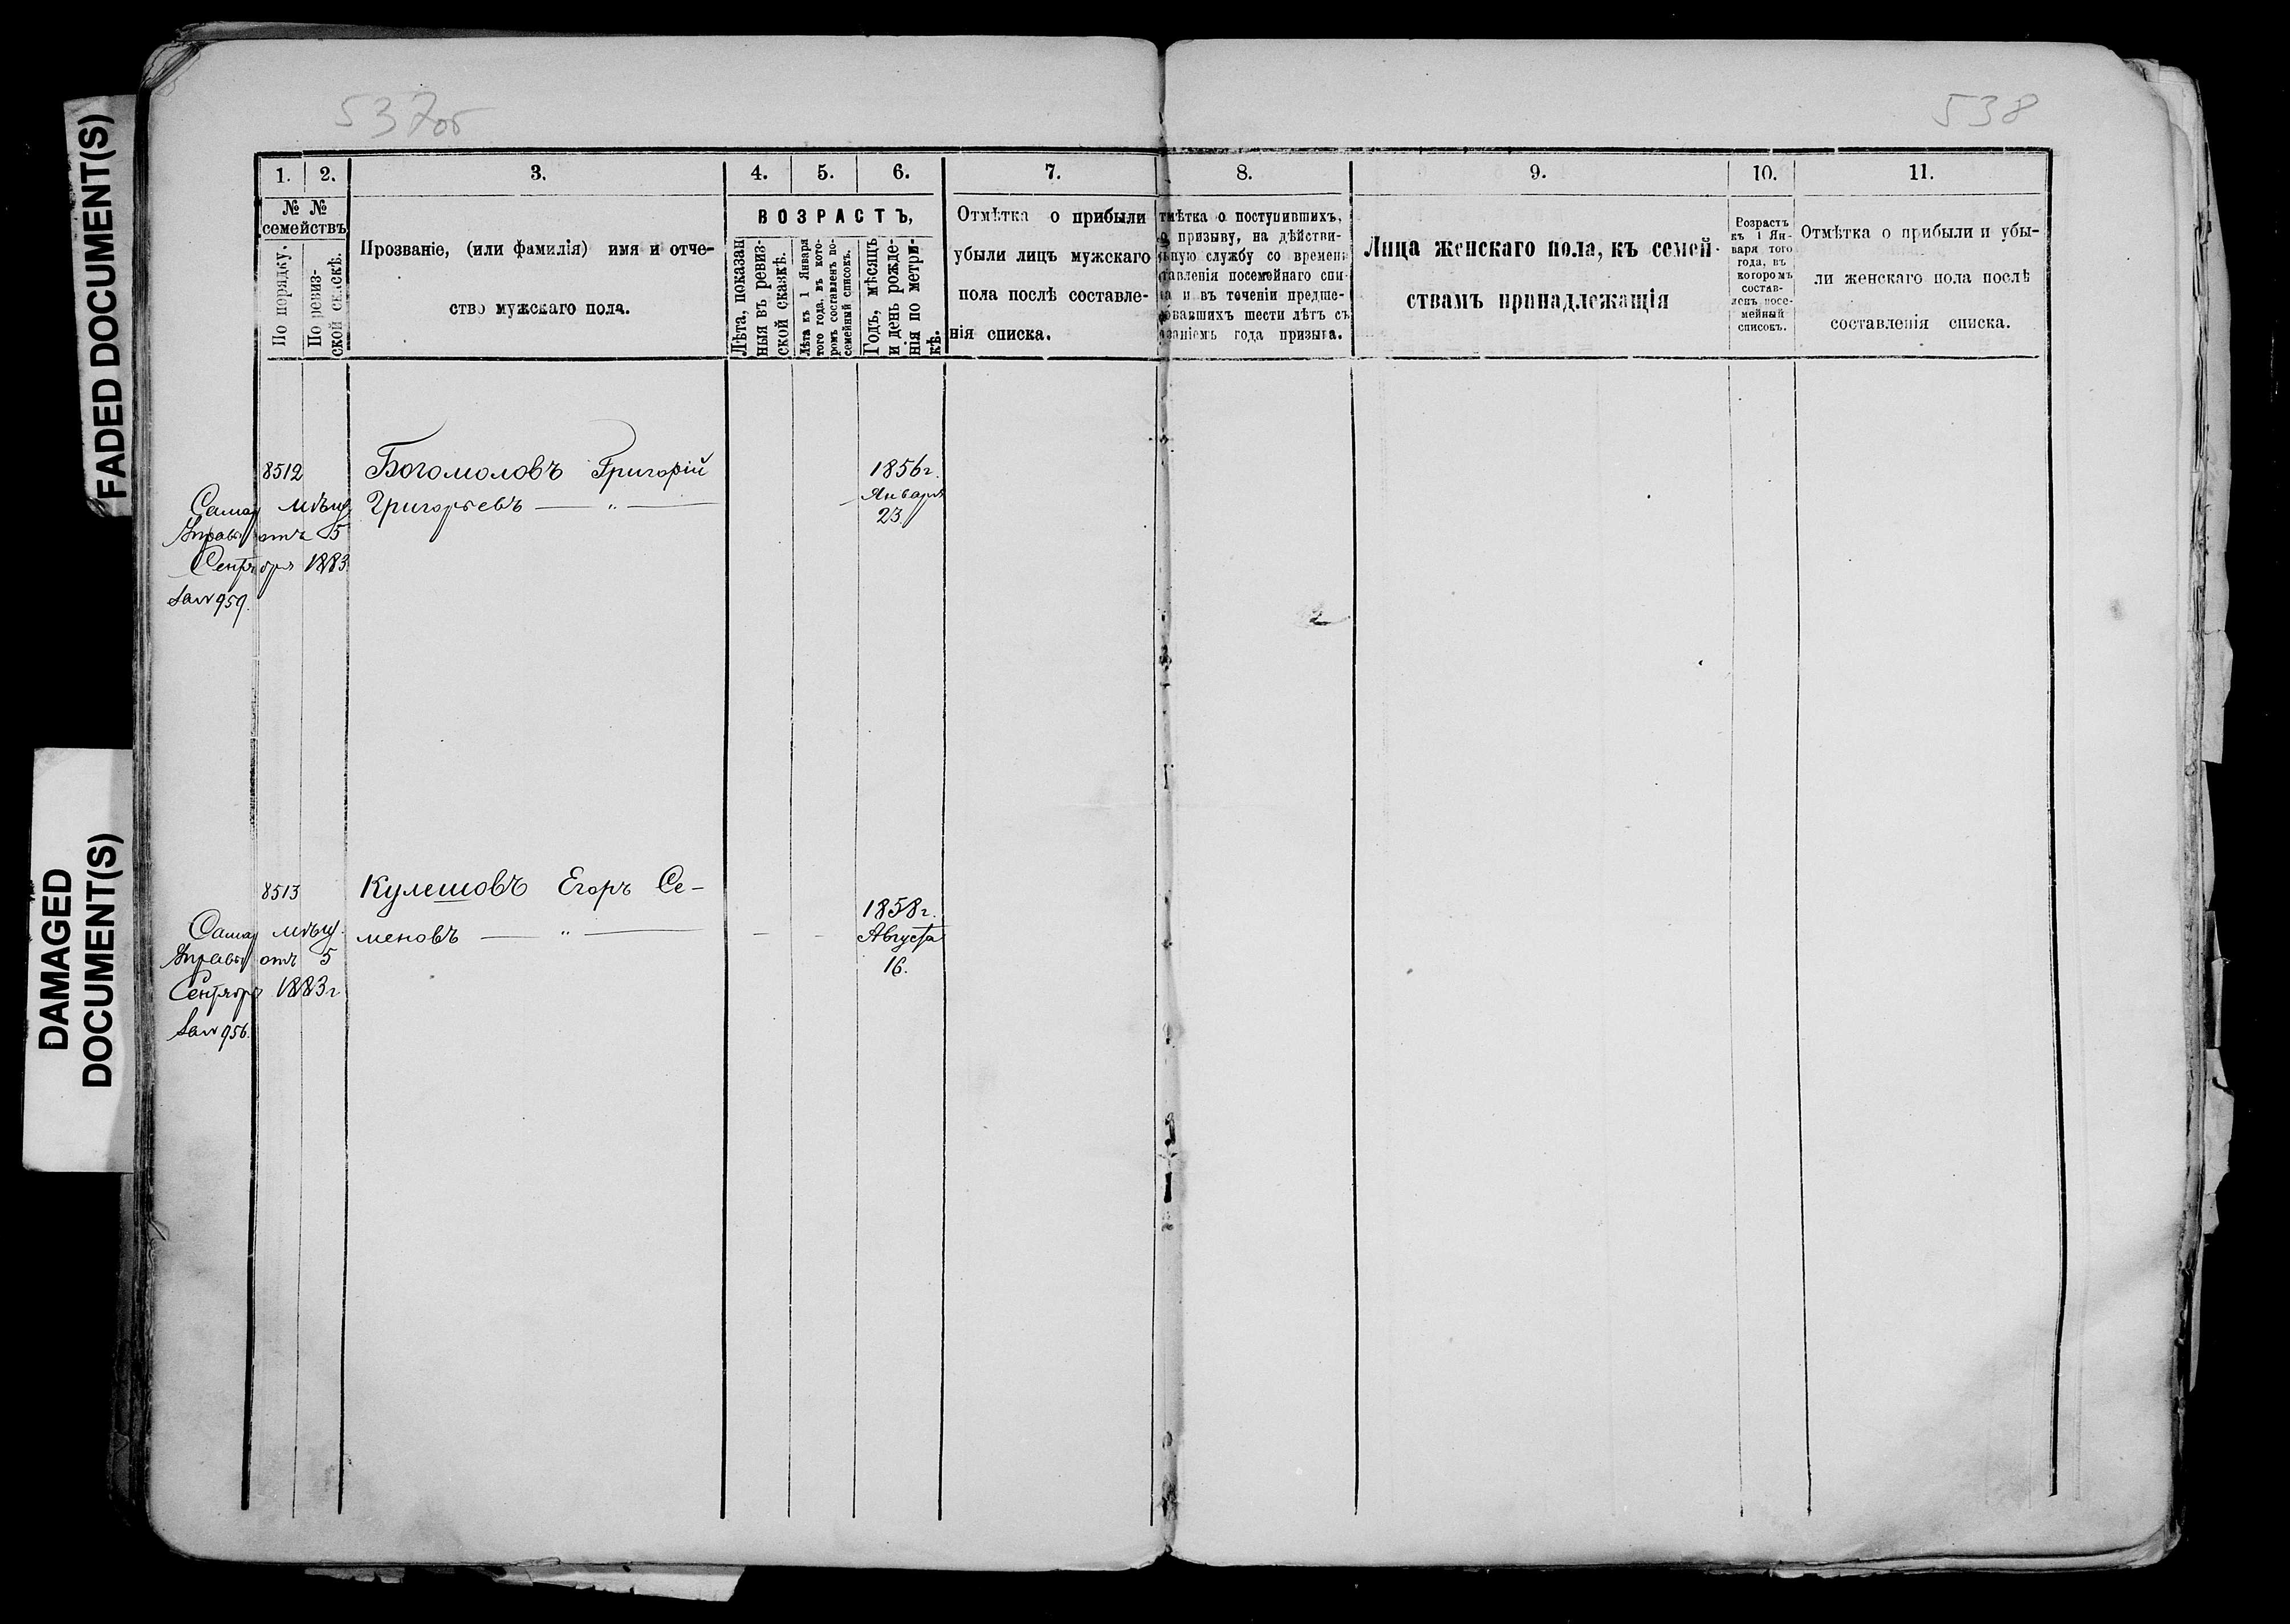 537об
538
FADED DOCUMENT(S)
DAMAGED
DOCUMENT(S)
1.
2.
3.
4.
5.
6.
7.
8.
9.
10.
11.
№ №
семействъ
По порядку.
По ревиз-
ской сказкѣ.
Прозваніе, (или фамилія) имя и отче-
ство мужскаго пола.
ВОЗРАСТЪ,
Лѣта, показан
ныя въ ревиз-
ской сказкѣ.
Лѣта къ 1 Января
того года, въ кото-
ромъ составленъ по-
семейный списокъ.
Годъ, мѣсяцъ
и день рожде-
нія по метри-
кѣ.
Отмѣтка о прибыли
убыли лицъ мужскаго
пола послѣ составле-
нія списка.
тмѣтка о поступившихъ,
о призыву, на дѣйстви-
ьную службу со времени
тавленія посемейнаго спи-
а и въ теченіи предше-
овавшихъ шести лѣтъ съ
азаніемъ года призыва.
Лица женскаго пола, къ семей-
ствамъ принадлежащія
Возрастъ
къ 1 Ян-
варя того
года, въ
которомъ
состав-
ленъ посе-
мейный
списокъ.
Отмѣтка о прибыли и убы-
ли женскаго пола послѣ
составленія списка.
8512
Богомоловъ Григорій
1856г.
Самар мѣщ
Григорьевъ — „ —
Января
Управы отъ 5
23
Сентября 1883
за № 959.
8513
Кулешовъ Егоръ Се-
1858г.
Самар мѣщ.
меновъ — „ —
Августа
Управы отъ 5
16.
Сентября 1883г
за № 956.